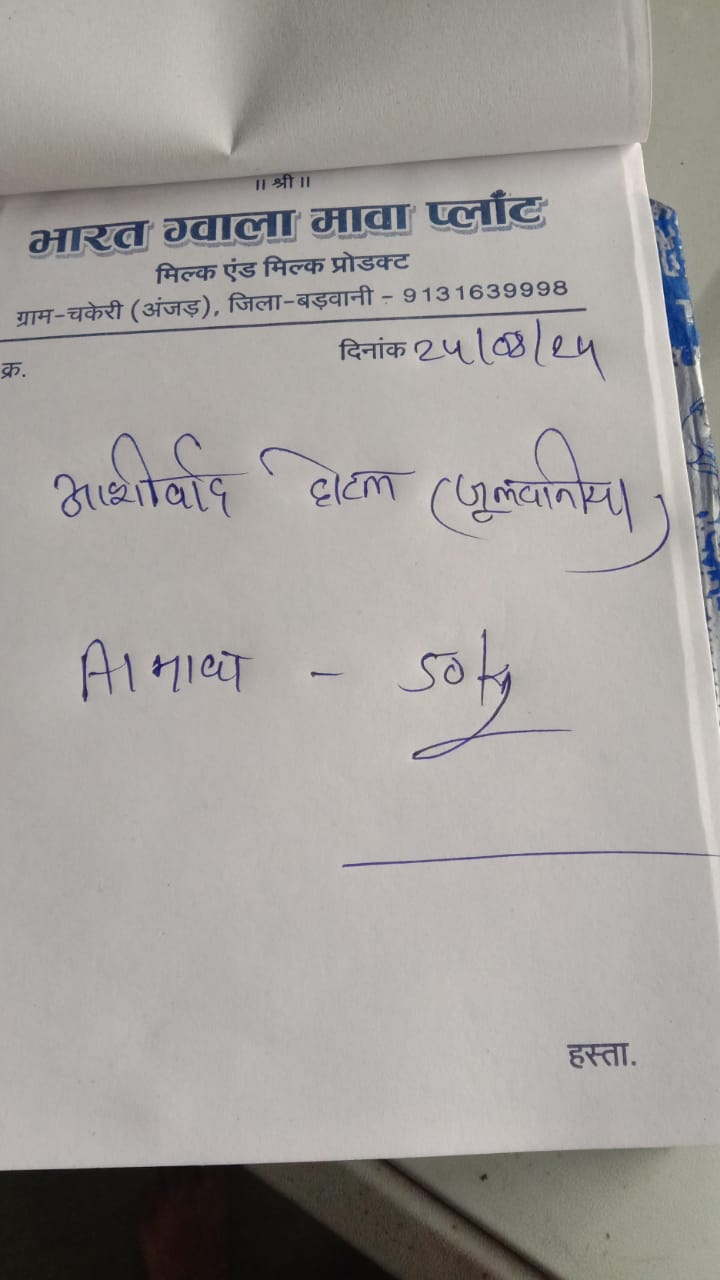 ॥ श्री ॥
भारत ग्वाला मावा प्लाँट
मिल्क एंड मिल्क प्रोडक्ट
ग्राम-चकेरी (अंजड़), जिला-बड़वानी - 9131639998
क्र. दिनांक २५/०८/२५
आशीर्वाद होटल (जूलवानीया)
- 50 kg
हस्ता.